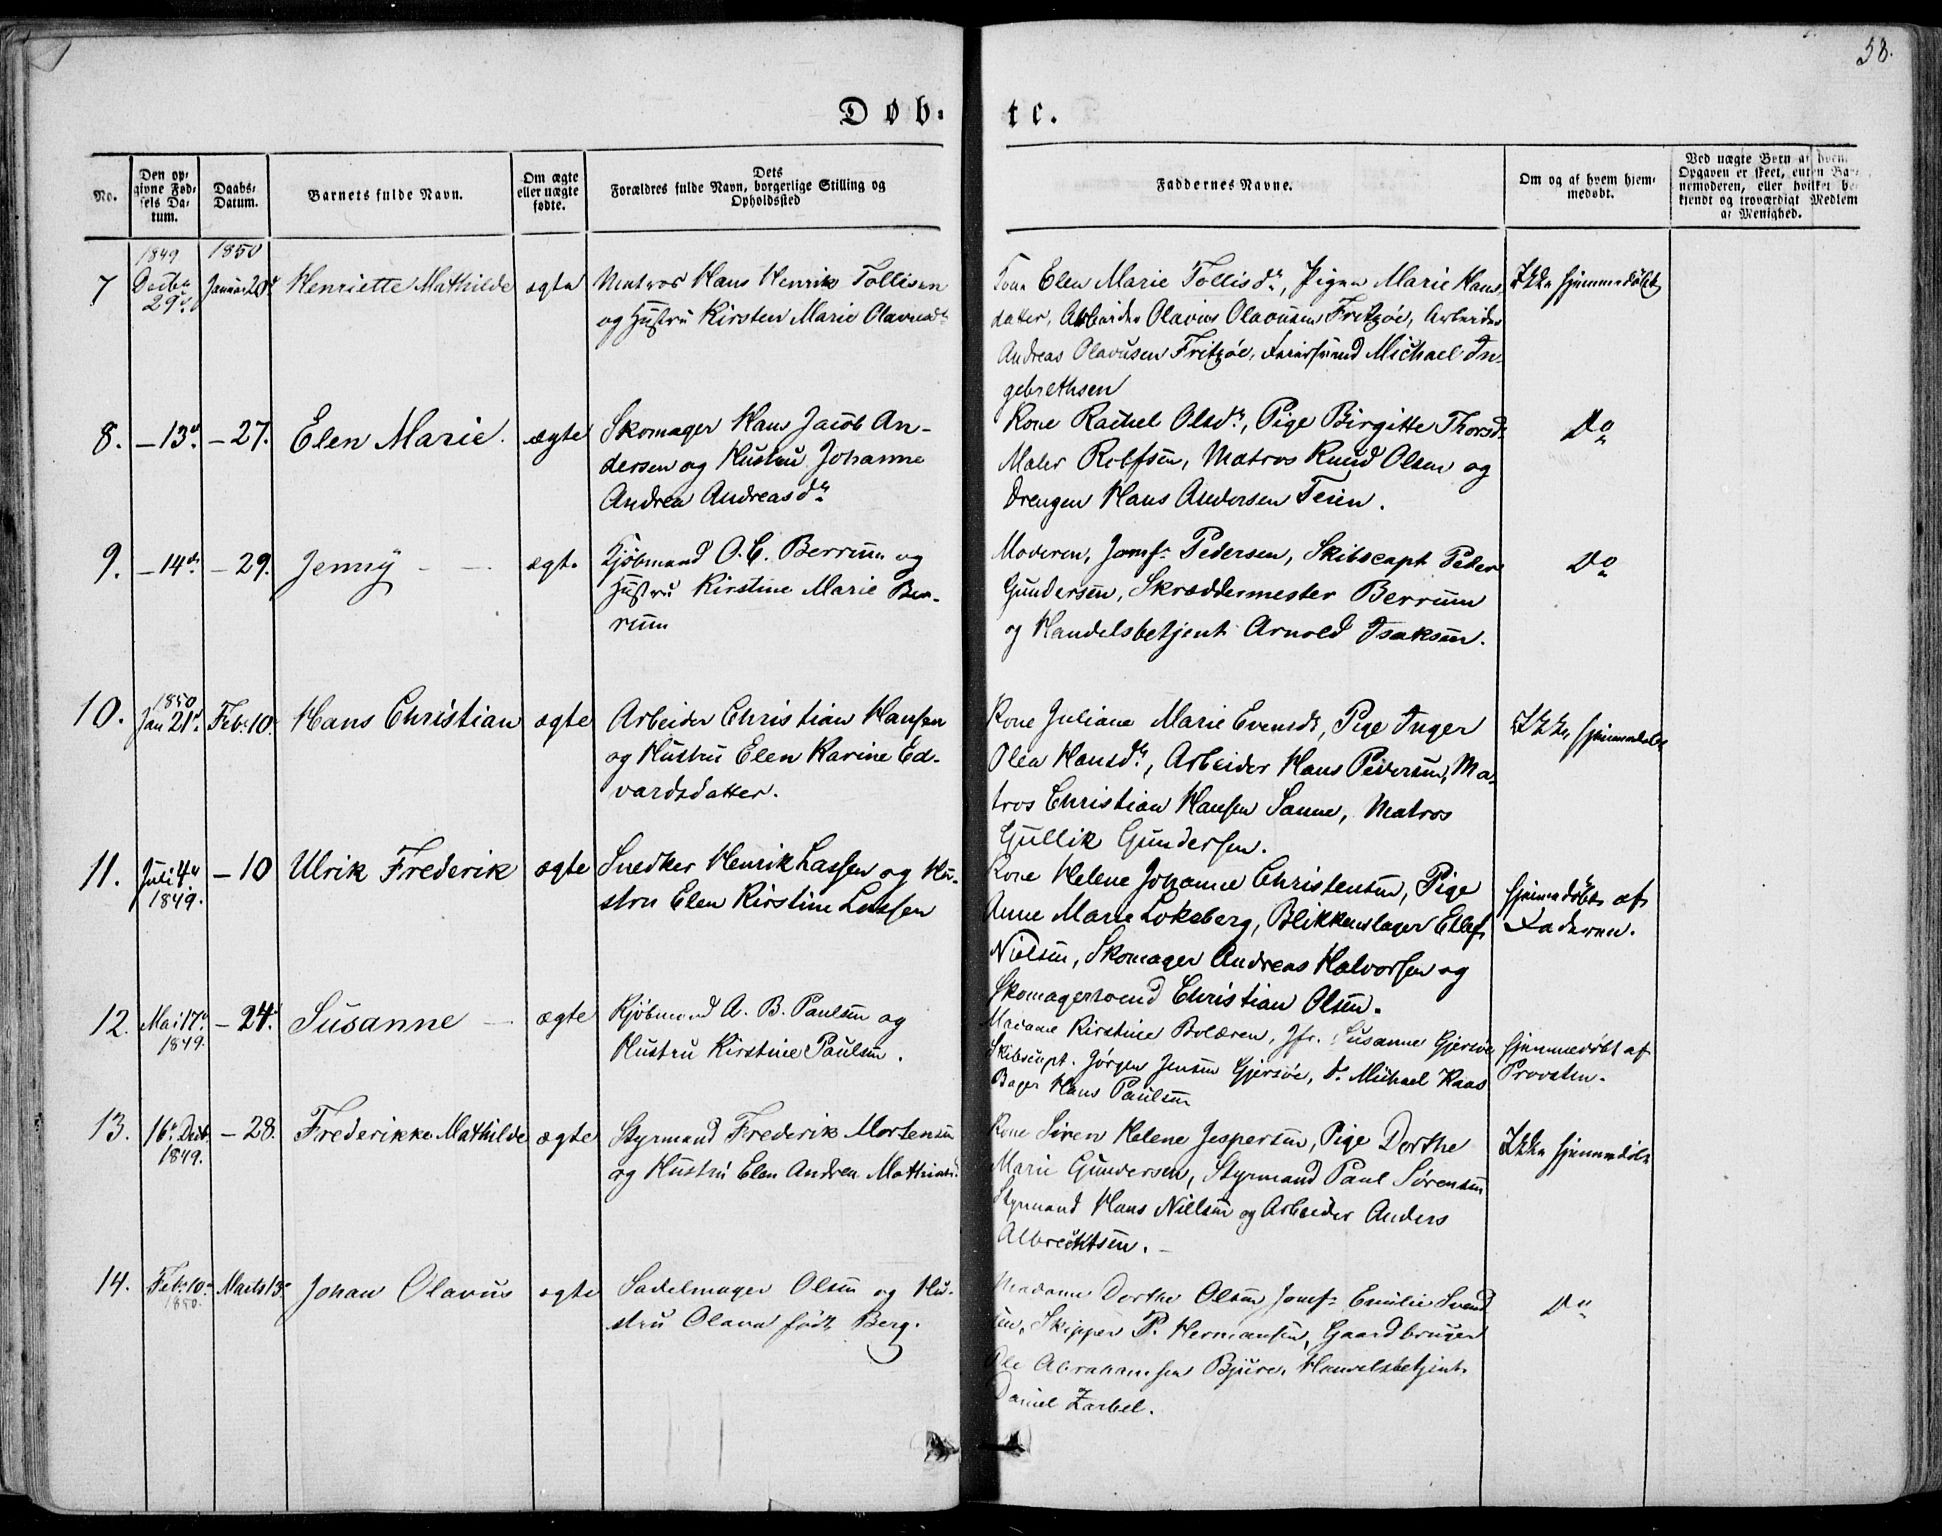 58.
Døb-
te.
No.
Den op-
givne Fød-
sels Da-
tum.
Daabs-
Datum.
Barnets fulde Navn.
Om ægte
eller uægte
fødte.
Dets
Forældres fulde Navn, borgerlige Stilling og
Opholdssted
Faddernes Navne.
Om og af hvem hjem-
medøbt.
Ved uægte Børn af hvem
Opgaven er skeet, enten Bar-
nemoderen, eller hvilket be-
kjendt og troværdigt Medlem
af Menighed.
1849 1850
7 Decbr 29de Januar 20de Henriette Mathilde ægte
Matros Hans Henrik Tollisen
og Hustru Kirsten Marie Olavusdr
Kone Elen Marie Tollisdr, Pigen Marie Hans-
datter, Arbeider Olavus Olavusen Fritzøe, Arbeider
Andreas Olavusen Fritzøe, Michael In-
gebrethsen
Ikke hjemmedøbt
8. – 13de – 27. Elen Marie. ægte
Skomager Hans Jacob An-
dersen og Hustru Johanne
Andrea Andreasdr
Kone Rachel Olsdr, Pige Birgitte Thorsdr
Maler Rolfsen, Matros Knud Olsen og
Drengen Hans Andersen Teien.
Do
9. – 14de – 29. Jenny – – ægte
Kjøbmand O. C. Berrum og
Hustru Kirstine Marie Ber-
rum
Moderen, Jomfr Pedersen, Skibscapt Peder
Gundersen, Skræddermester Berrum
og Handelsbetjent Arnold Isaksen.
Do
1850
10. Jan 21de Feb. 10. Hans Christian ægte
Arbeider Christian Hansen
og Hustru Elen Karine Ed-
vardsdatter.
Kone Juliane Marie Evensdr, Pige Inger
Olea Hansdr, Arbeider Hans Pedersen, Ma-
tros Christian Hansen Sanne, Matros
Gullik Gundersen.
Ikke hjemmedøbt
11. Juli 4de 1849. – 10 Ulrik Frederik ægte
Snedker Henrik Lassen og Hu-
stru Elen Kirstine Lassen
Kone Helene Johanne Christensen, Pige
Anne Marie Loksberg, Blikkenslager Ellef
Nielsen, Skomager Andreas Halvorsen og
Skomagersvend Christian Olsen.
Hjemmedøbt af
Faderen.
12. Mai 17de 1849. – 24. Susanne – ægte
Kjøbmand A. B. Paulsen og
Hustru Kirstine Paulsen.
Madame Kirstine Bolæren, Jfr. Susanne Gjersøe
Skibscapt. Jørgen Jensen Gjersøe, do Michael Kaas
Bager Hans Paulsen
Hjemmedøbt af
Provsten.
13. 16de Decbr. 1849. – 28. Frederikke Mathilde ægte
Styrmand Frederik Mortensen
og Hustru Elen Andrea Mathiasd.
Kone Siren Helene Jespersen, Pige Dorthe
Marie Gundersen, Styrmand Paul Sørensen
Styrmand Hans Nielsen og Arbeider Anders
Albrechtsen. –
Ikke hjemmedøbt
14. Feb. 10de 1850. Marts 13de Johan Olavus ægte
Sadelmager Olsen og Hu-
stru Olava født Berg.
Madame Dorthe Olsen Jomfr Emilie Svend-
sen, Skipper P. Hermansen, Gaardbruger
Ole Abrahamsen Bjure, Handelsbetjent
Daniel Zarbel.
Do